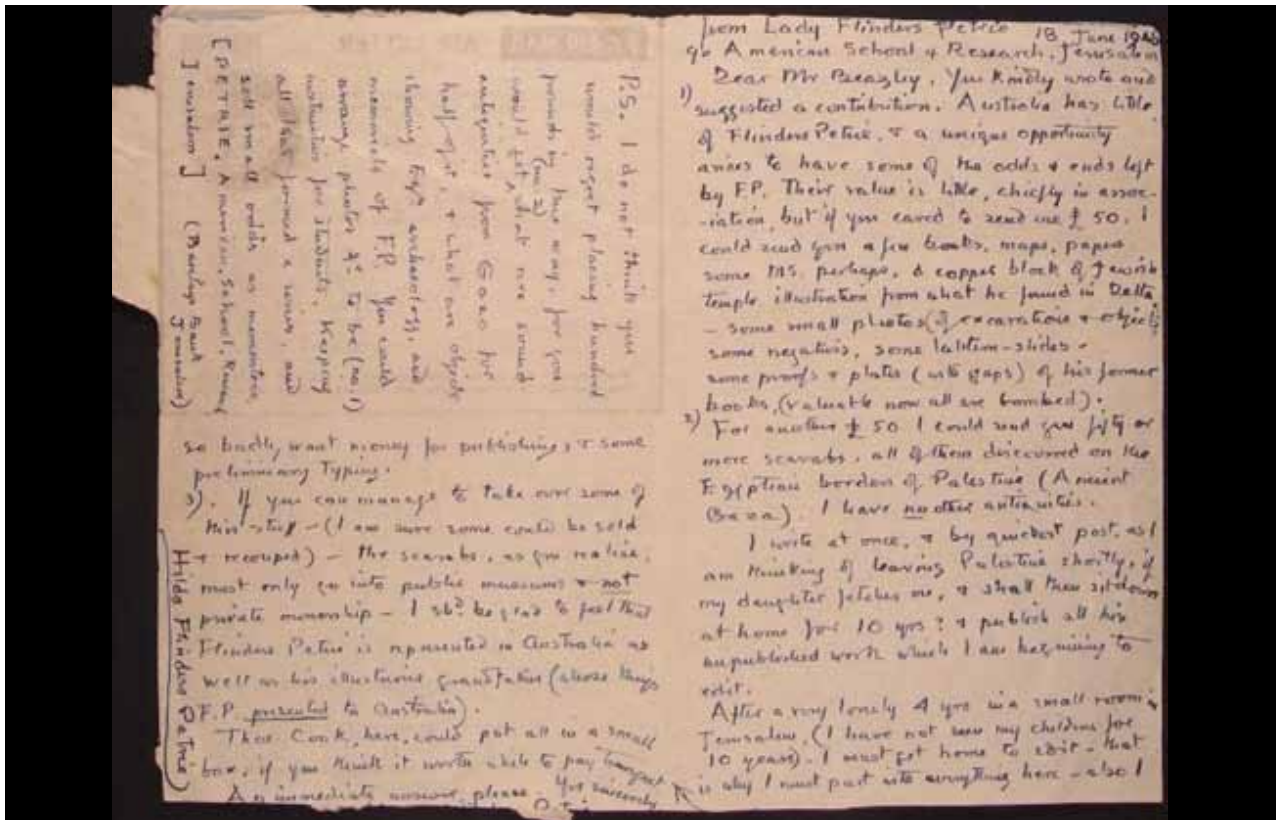 from Lady Flinders Petrie 18 June 1946
c/o American School of Research, Jerusalem
Dear Mr Beasley, You kindly wrote and
1) suggested a contribution. Australia has little
of Flinders Petrie, & a unique opportunity
arises to have some of the odds & ends left
by F.P. Their value is little, chiefly in assoc-
-iation, but if you cared to send me £50. I
could send you a few books, maps, papers
some MS. perhaps, a copper block of Jewish
temple illustration from what he found in Delta
- some small photos (of excavations & objects
some negatives, some lantern-slides -
some proofs & plates (with gaps) of his former
books, (valuable now all are bombed).
2) For another £50 I could send you fifty or
more scarabs. all of them discovered on the
Egyptian borders of Palestine (Ancient
Gaza). I have no other antiquities.
I write at once, & by quickest post, as I
am thinking of leaving Palestine shortly, if
my daughter fetches me, & shall then sit down
at home for 10 yrs? & publish all his
unpublished work which I am beginning to
edit.
After a very lonely 4 yrs in a small room in
Jerusalem, (I have not seen my children for
10 years). I must get home to edit - that
is why I must part with everything here - also I
so badly want money for publishing, & some
preliminary typing.
3). If you can manage to take over some of
this stuff - (I am sure some could be sold
& recouped) - the scarabs, as you realise,
must only go into public museums & not
private ownership - I shd be glad to feel that
Flinders Petrie is represented in Australia as
well as his illustrious grandfather (whose things
F.P. presented to Australia).
Thos Cook, here, could put all in a small
box, if you think it worth while to pay transport
An immediate answer please - Yrs sincerely
Hilda Flinders Petrie
P.S. I do not think you
would regret placing hundred
pounds in this way, for you
would get (no. 2) what are sound
antiquities from Gaza for
half of it, & what are objects
showing Egyn archaeology, and
memorials of F.P. You could
arrange photos &c to be (no. 1)
instructive for students, keeping
all that formed a series, and
sell small odds as mementoes
[PETRIE, American School,
Jerusalem] (Barclays Bank
Jerusalem)